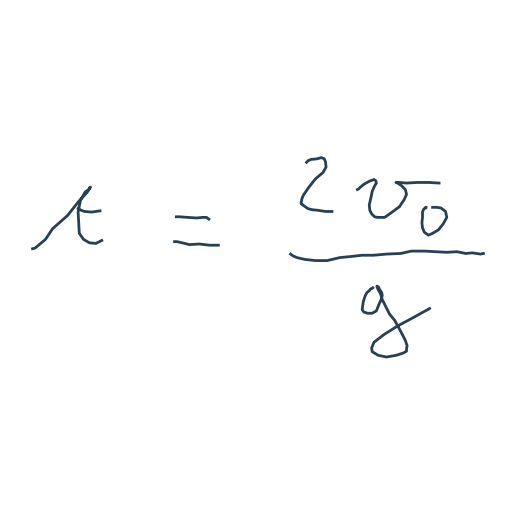 t = \frac{2v_0}{g}